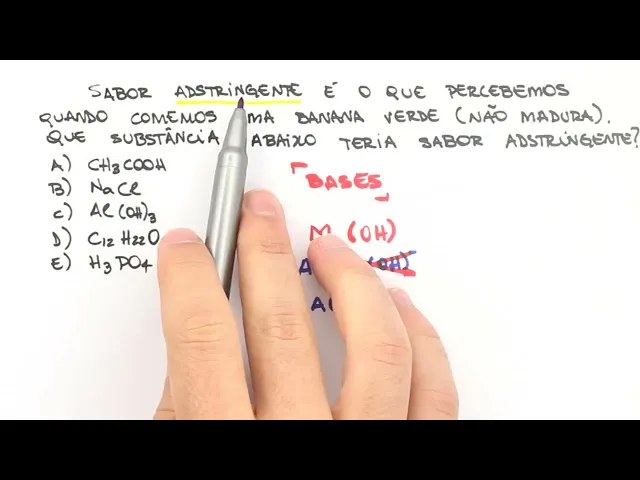 SABOR ADSTRINGENTE É O QUE PERCEBEMOS
QUANDO COMEMOS UMA BANANA VERDE (NÃO MADURA).
QUE SUBSTÂNCIA ABAIXO TERIA SABOR ADSTRINGENTE?
A) CH3COOH
B) NaCl
C) Al(OH)3
D) C12H22O
E) H3PO4
BASES
M (OH)
A (OH)
A